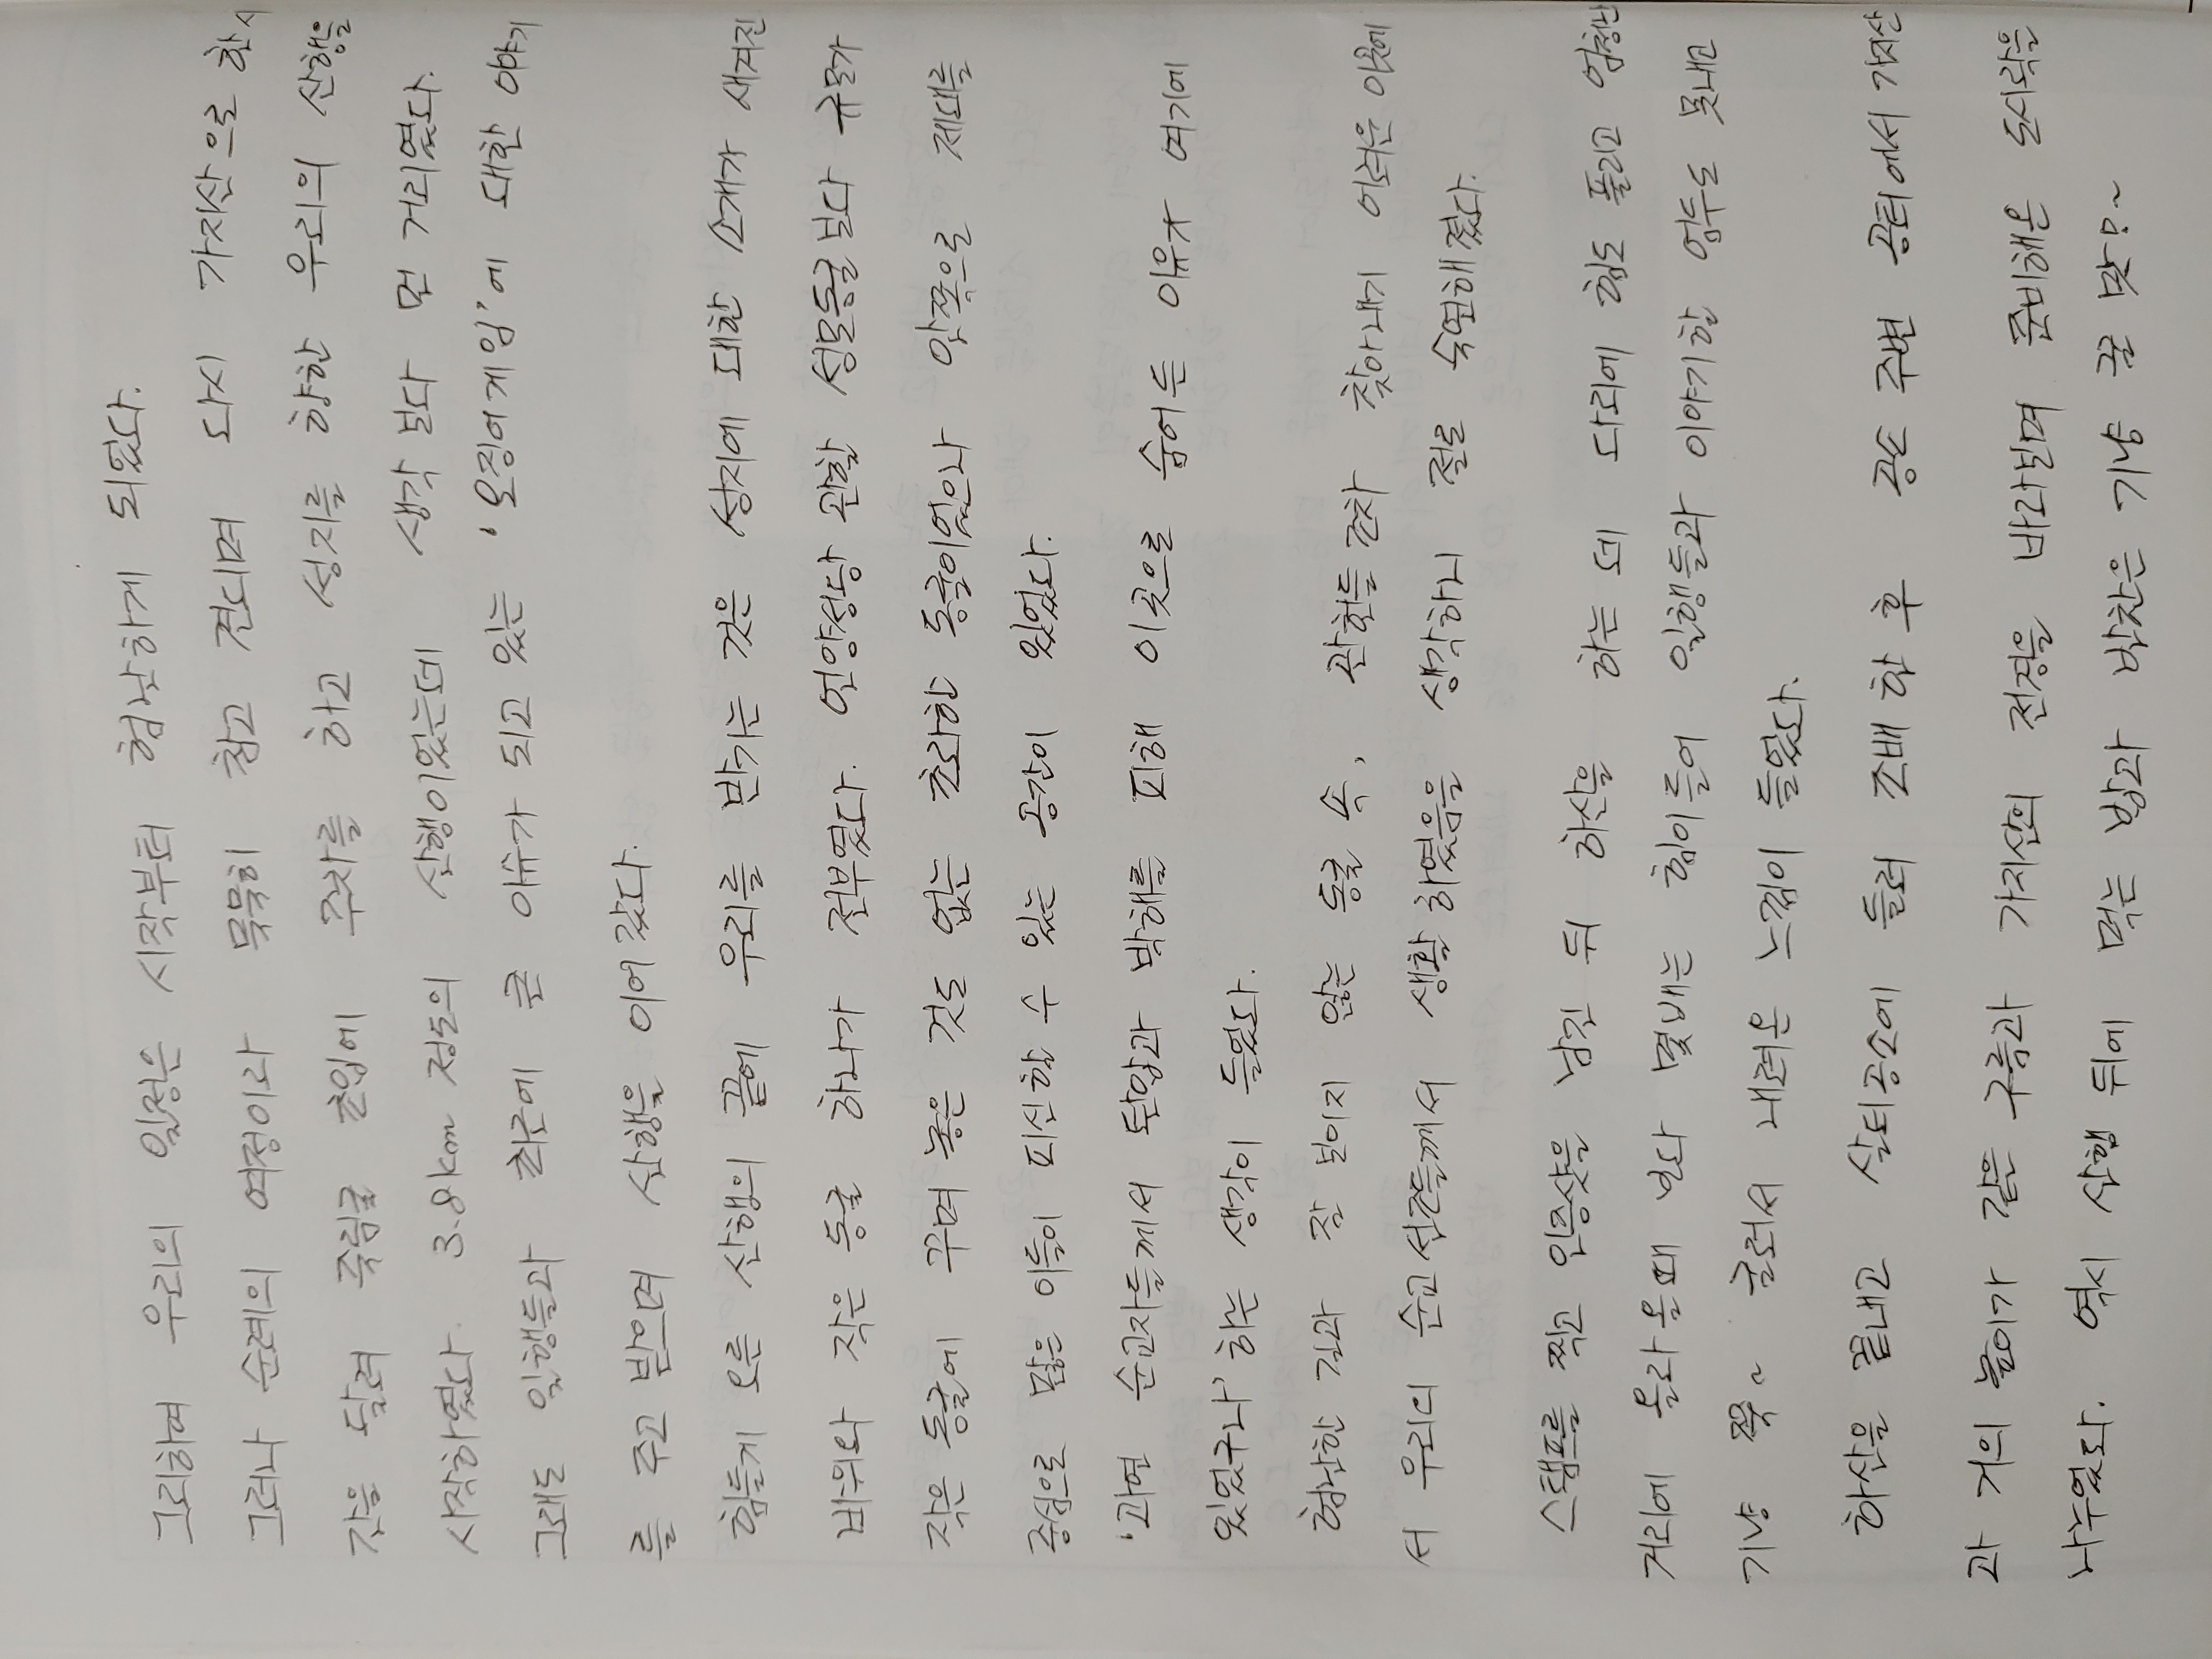 그리하여 우리의 일정은 시작부터 험난하게 되었다.
그러나 순례의 여정이라 묵묵히 참고 견디며 다시 가지산으로 한시
간을 달려 죽림굴 초입에 주차를 하고 성지를 향한 우리의 산행을
시작하였다. 3.8km 정도의 산행이었는데 생각 보다 먼 거리였다.
그래도 일행들과 최근에 큰 이슈가 되고 있는 '오징어게임'에 대한 이야기
를 주고 받으며 산행을 이어 갔다.
힘들게 오른 산행의 끝에 우리를 반기는 것은 성지에 대한 소개가 새겨진
바위와 작은 동굴 하나가 전부였다. 언양성당 관할 성모동굴보다 규모가
작은 동굴에 꾸며 놓은 것도 없는 초라한 동굴이었으나 안쪽으로 제대를
중심으로 많은 이들이 피신할 수 있는 공간이 있었다.
'과연 순교자들께서 탄압과 박해를 피해 이곳으로 숨어든 이유가 여기에
있었구나' 하는 생각이 들었다.
험난한 길과 잘 보이지 않는 동굴 속, 관헌들 조차 찾아내기 어려운 이곳에
서 우리의 순교 선조들께서 생활 하였음을 생각하니 절로 숙연해 졌다.
스탬프를 찍고 인증샷을 남긴 뒤 하산을 하는 데 다리에 힘도 풀리고 엄청난
거리에 올라 올때 보다 몇배는 힘이 들어 일행들과 이야기할 엄두도 못내고
기냥 쭉~ 굴러서 내려온 느낌이 들었다.
하산을 끝내고 살티공소에 들러 조배 한 후 공소 주변 공터에서 가지산
과 거의 높이가 같은 구름과 가지산의 전경을 바라보며 준비해온 도시락을
나누었다. 역시 산행 뒤에 먹는 밥과 반찬은 기냥 꿀 맛?~